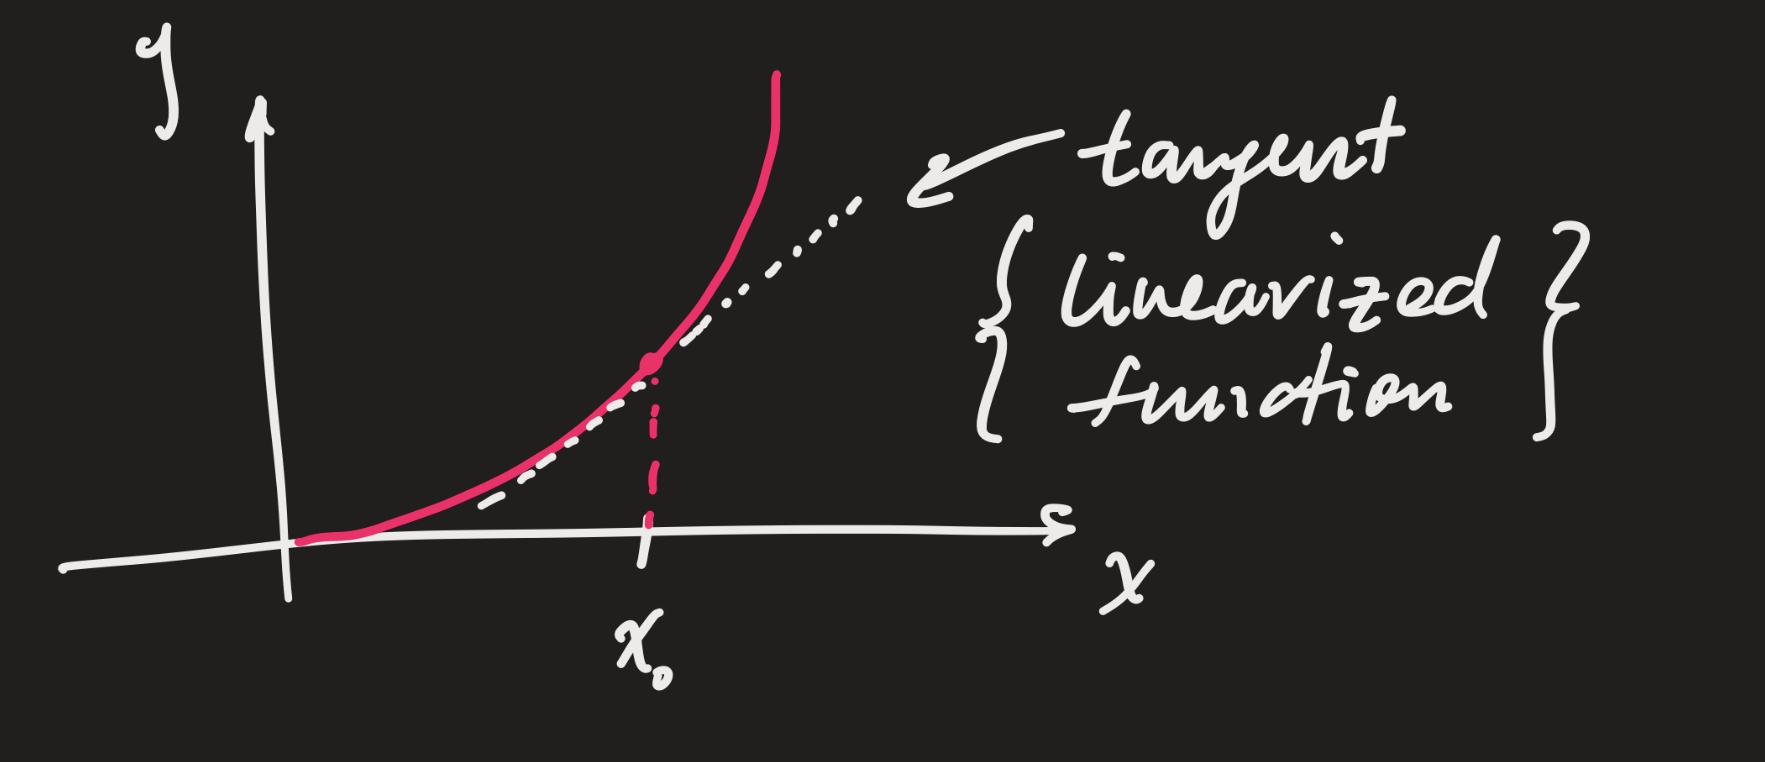 y
tangent
{ linearized
function }
x
x₀